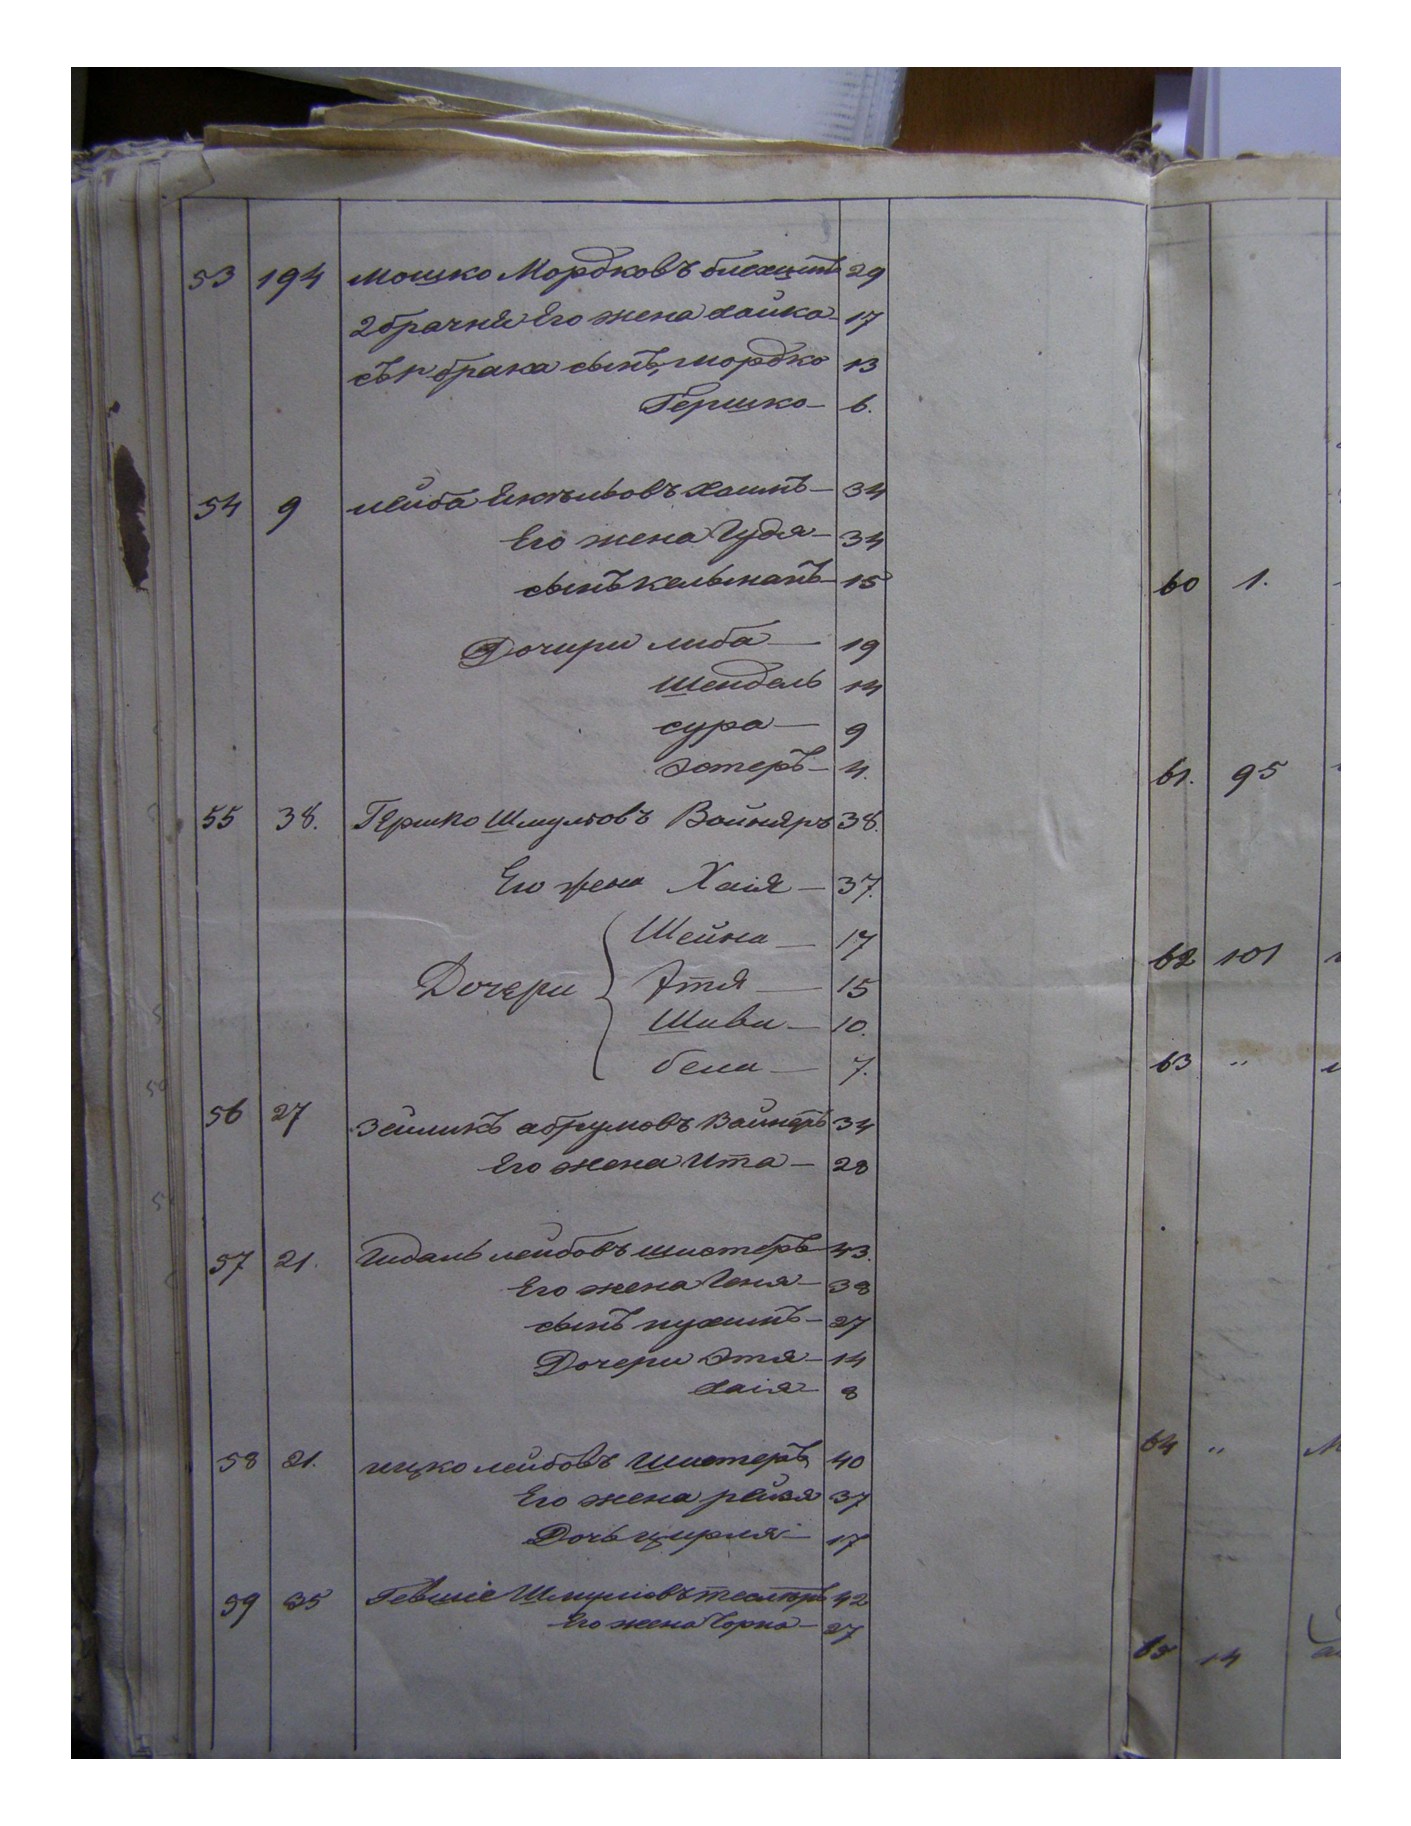 53 194 Мошко Мордковъ блехцинъ 29
2 брачня Его жена хайка 17
съ 1го брака сынъ, мордко 13
Гершко — 6.
54 9 лейба Якельовъ хаимъ — 34
Его жена Гудя — 34
сынъ кельманъ — 15
Дочири либа — 19
Шендель 14
сура — 9
Эстеръ — 4.
55 38. Гершко Шмульовъ Войняръ 38.
Его жена Хаія — 37.
Дочери Шейна — 17
Этя — 15
Шива — 10.
бела — 7.
56 27 Зейликъ абрумовъ Вайнеръ 34
Его жена Ита — 28
57 21. Гидаль лейбовъ шистеръ 43.
Его жена Геня — 38
сынъ нухимъ — 27
Дочери Этя — 14
хаія — 8
58 21. ицко лейбовъ Шистеръ 40
Его жена рейзя 37
Дочь цирля — 17
59 35 Гевшіе Шмуліовъ теслюръ 42
Его жена Чорна — 27
60 1.
61. 95
62 101
63 "
64 "
65 14